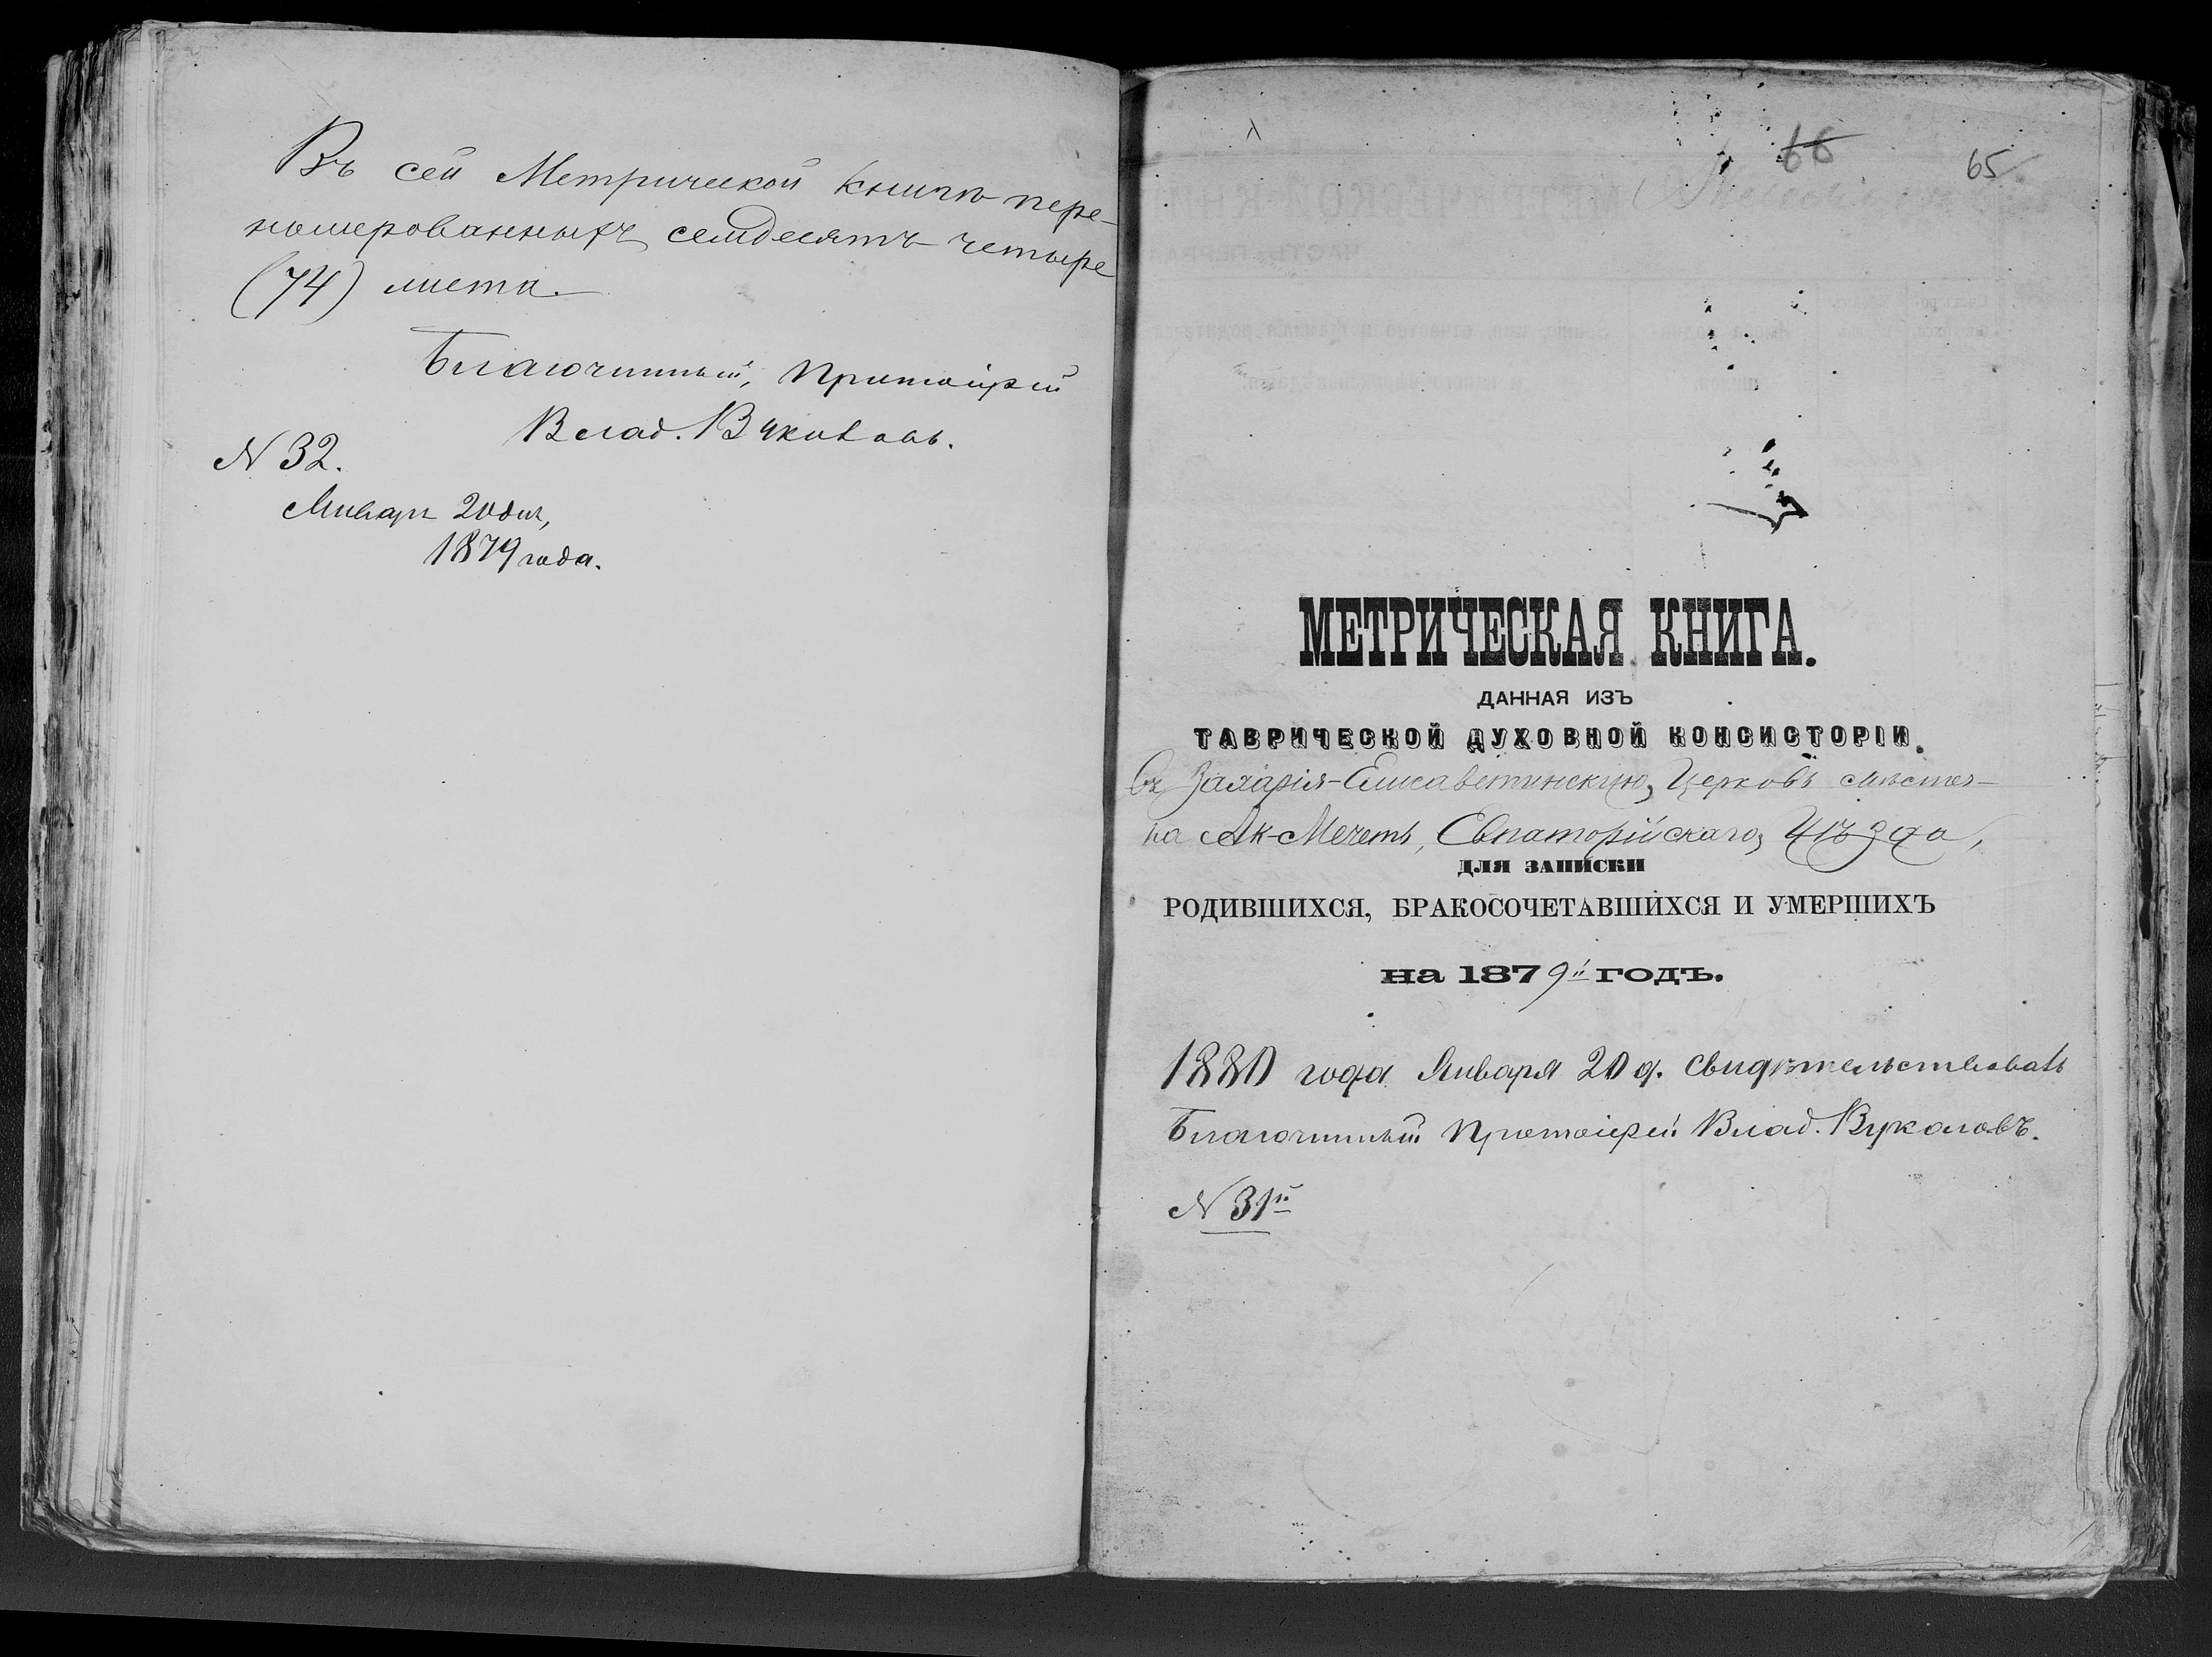 Въ сей Метрической книгѣ пере-
номерованныхъ семдесятъ четыре
(74) листа.
Благочинный, Протоіерей
Влад. Вукаловъ.
N 32.
Января 20 дня,
1879 года.
66
65
МЕТРИЧЕСКАЯ КНИГА.
ДАННАЯ ИЗЪ
ТАВРИЧЕСКОЙ ДУХОВНОЙ КОНСИСТОРІИ.
Въ Захарія-Елисаветинскую Церковь мѣстеч-
ка Ак-Мечеть, Евпаторійскаго уѣзда,
ДЛЯ ЗАПИСКИ
РОДИВШИХСЯ, БРАКОСОЧЕТАВШИХСЯ И УМЕРШИХЪ
на 1879й годъ.
1880 года Января 20 д. свидѣтельствовалъ
Благочинный Протоіерей Влад. Вукаловъ.
N 31й